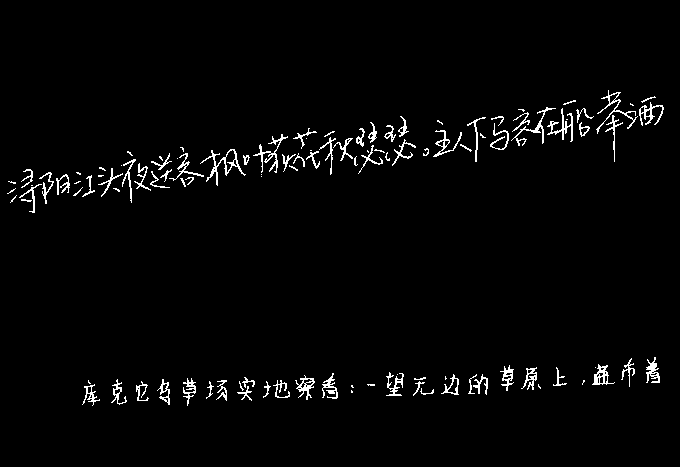 浔阳江头夜送客枫叶荻花秋瑟瑟。主人下马客在船举酒
库克它乌草场实地察看:一望无边的草原上,盖布着